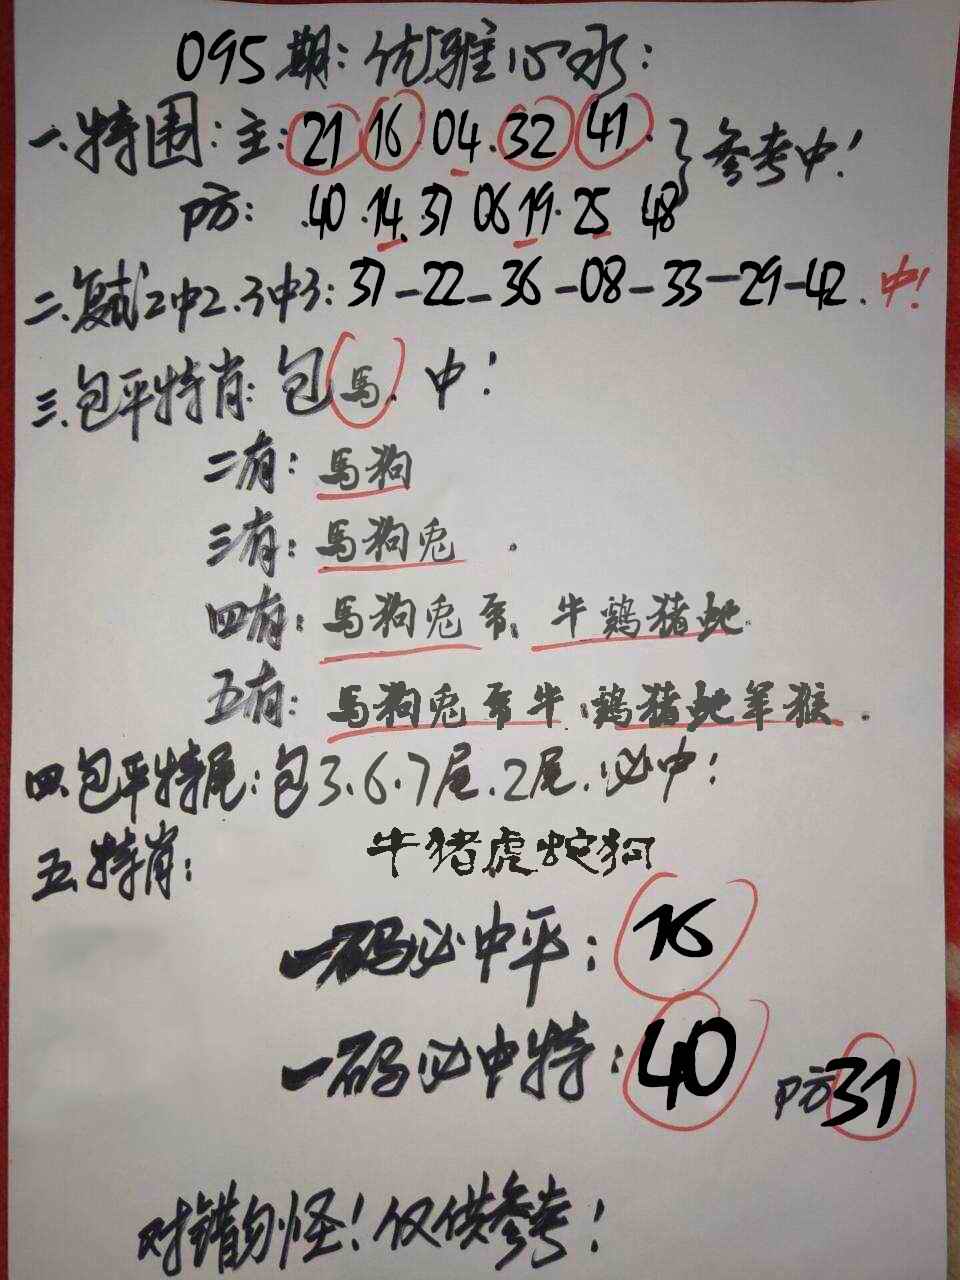 095期:优雅心水:
一.特围:主:21 16 04.32 41.}参考中!
防: .40.14.37 06 19.25 48
二.复式2中2.3中3:37-22-36-08-33-29-42.中!
三.包平特肖:包馬.中!
二有:馬狗
三有:馬狗兎.
四有:馬狗兎 牛鷄猪蛇.
五有:馬狗兎 牛.鷄猪蛇羊猴.
四.包平特尾:包3.6.7尾.2尾.必中!
五.特肖: 牛猪虎蛇狗
一码必中平:16
一码必中特:40 防31
对错勿怪!仅供参考!